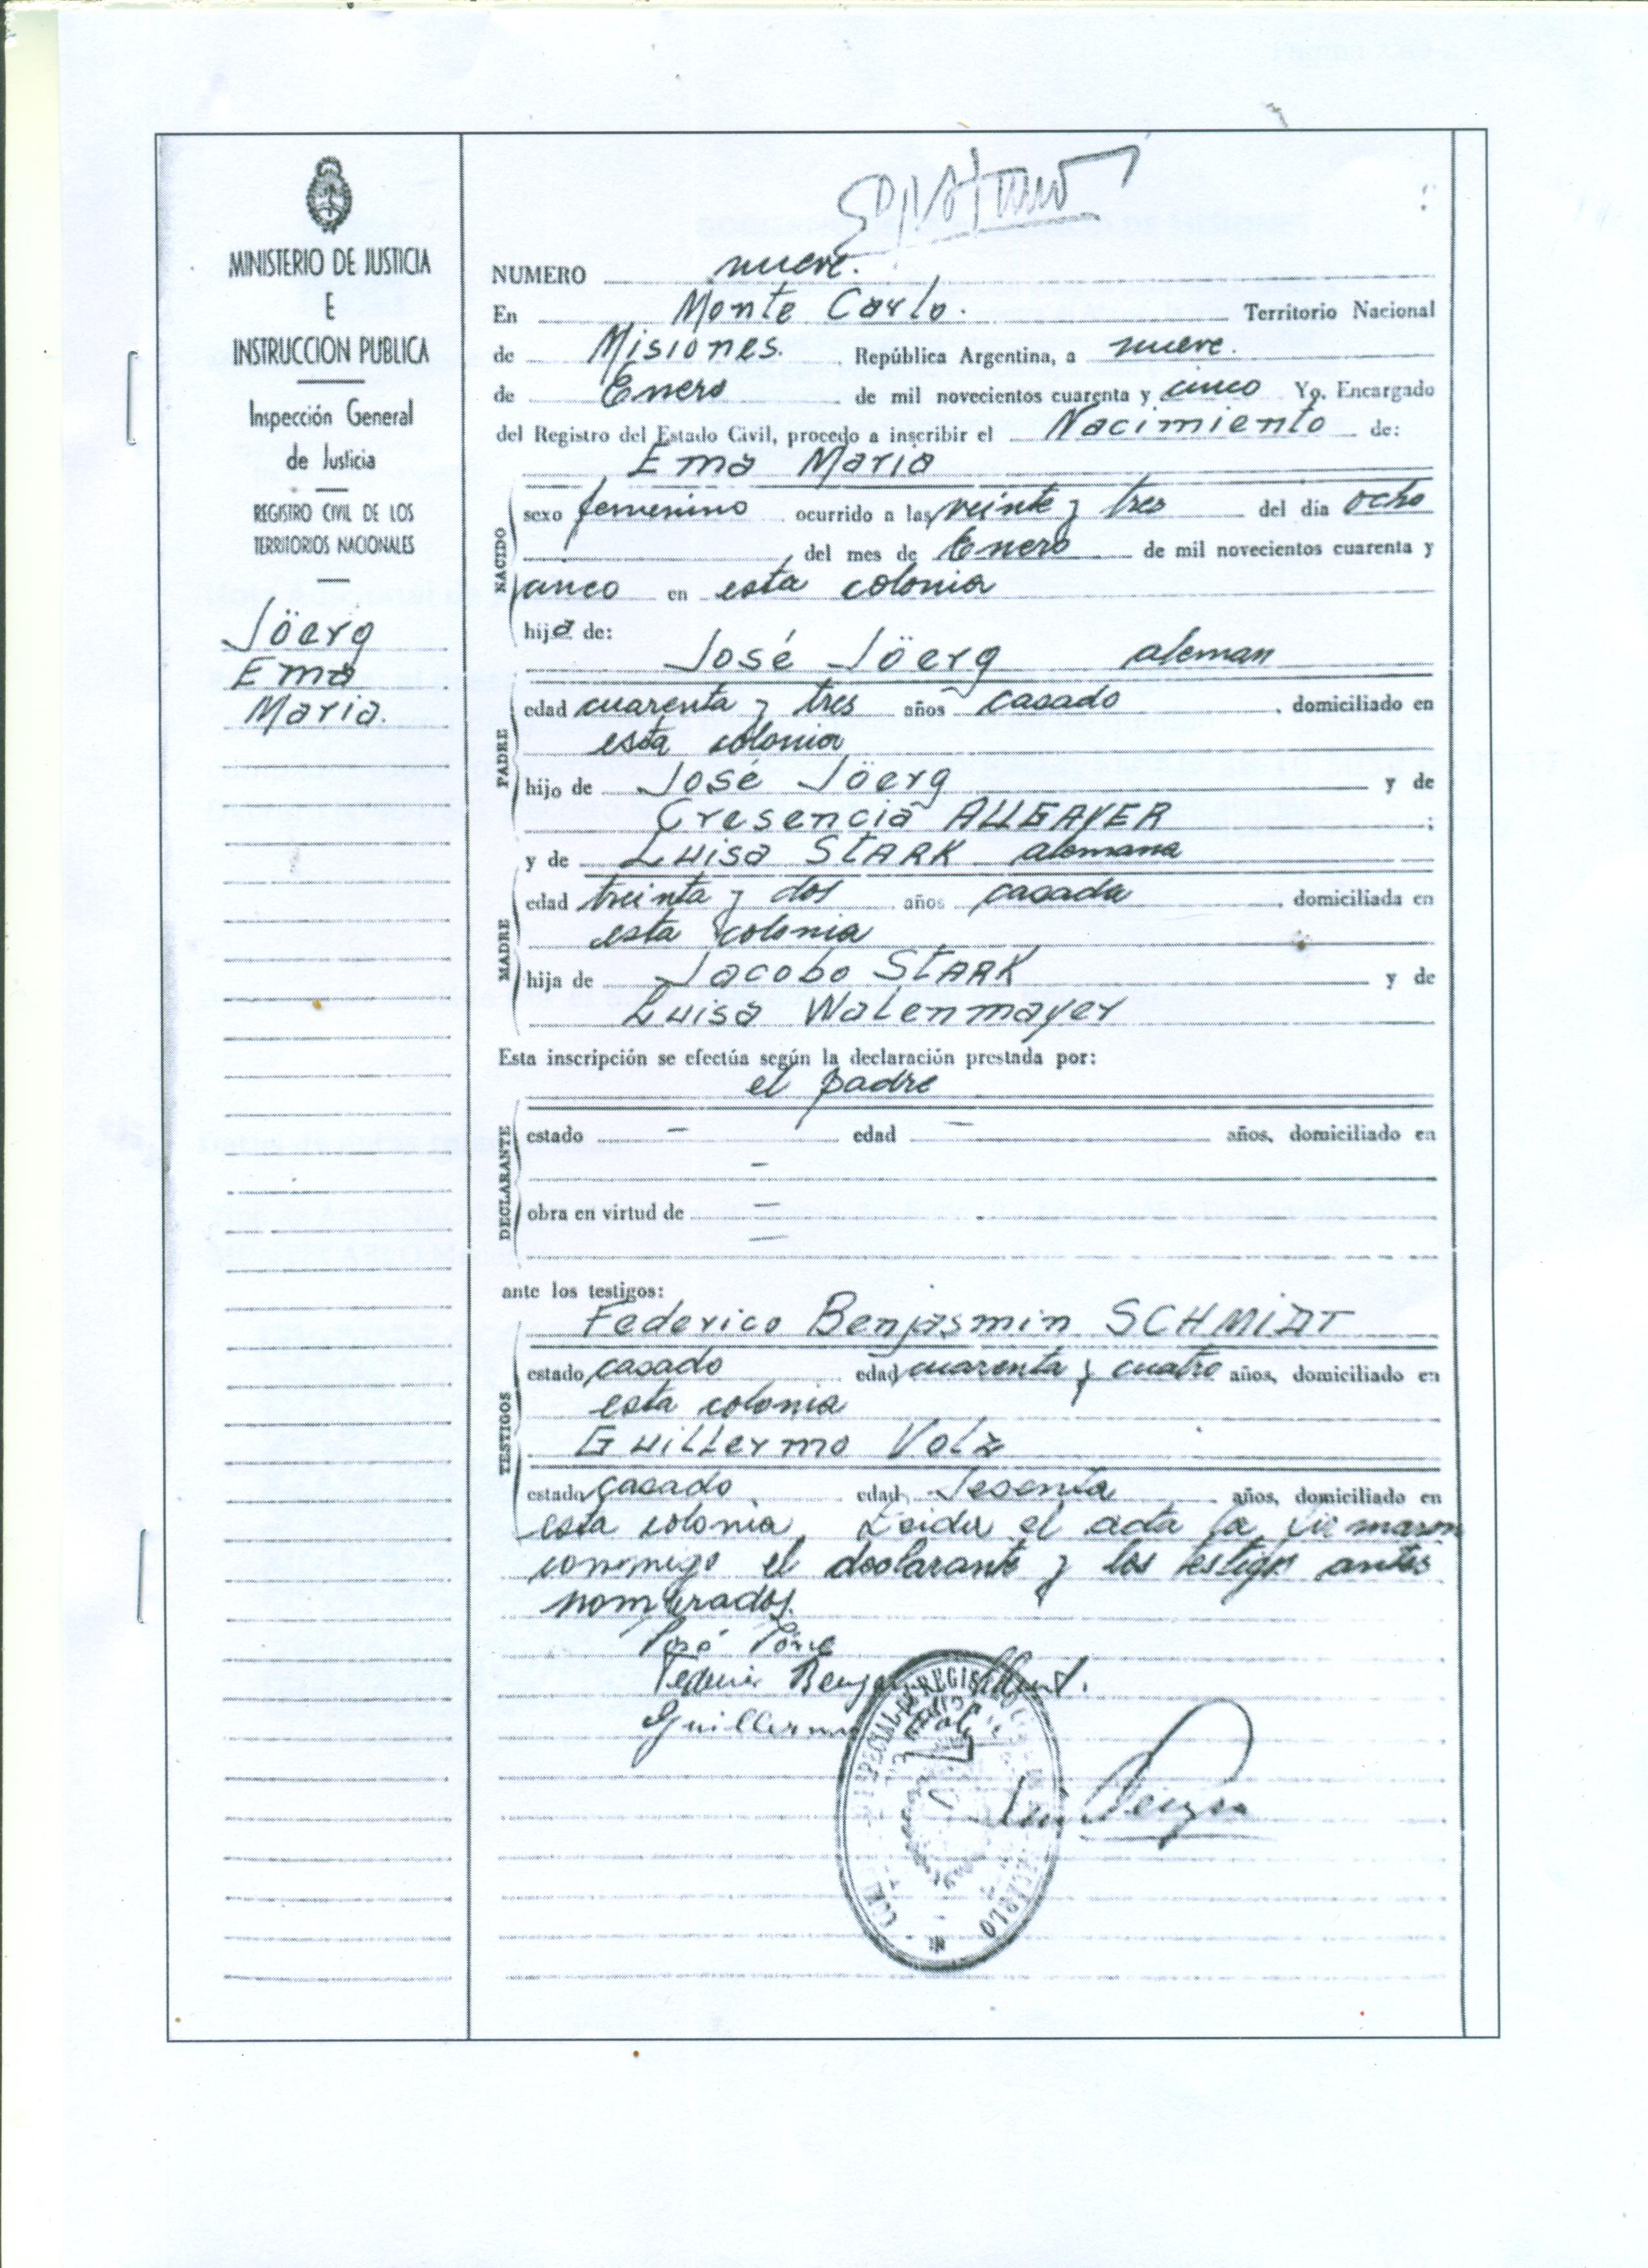 MINISTERIO DE JUSTICIA
E
INSTRUCCION PUBLICA
Inspección General
de Justicia
REGISTRO CIVIL DE LOS
TERRITORIOS NACIONALES
Jöerg
Ema
Maria.
NUMERO nueve.
En Monte Carlo. Territorio Nacional
de Misiones. República Argentina, a nueve.
de Enero de mil novecientos cuarenta y cinco Yo. Encargado
del Registro del Estado Civil, procedo a inscribir el Nacimiento de:
Ema Maria
NACIDO
sexo femenino ocurrido a las veinte y tres del día ocho
del mes de Enero de mil novecientos cuarenta y
cinco en esta colonia
hija de:
José Jöerg aleman
PADRE
edad cuarenta y tres años casado, domiciliado en
esta colonia
hijo de José Jöerg y de
Cresencia ALLGAYER;
y de Luisa STARK alemana
MADRE
edad treinta y dos años casada, domiciliada en
esta colonia
hija de Jacobo STARK y de
Luisa Walenmayer
Esta inscripción se efectúa según la declaración prestada por:
el padre
DECLARANTE
estado - edad - años, domiciliado en
-
obra en virtud de -
-
ante los testigos:
Federico Benjasmin SCHMIDT
TESTIGOS
estado casado edad cuarenta y cuatro años, domiciliado en
esta colonia
Guillermo Volz
estado casado edad Sesenta años, domiciliado en
esta colonia Leida el acta la firmaron
conmigo el declarante y los testigos antes
nombrados.
Guillermo
REGIS
CARLO